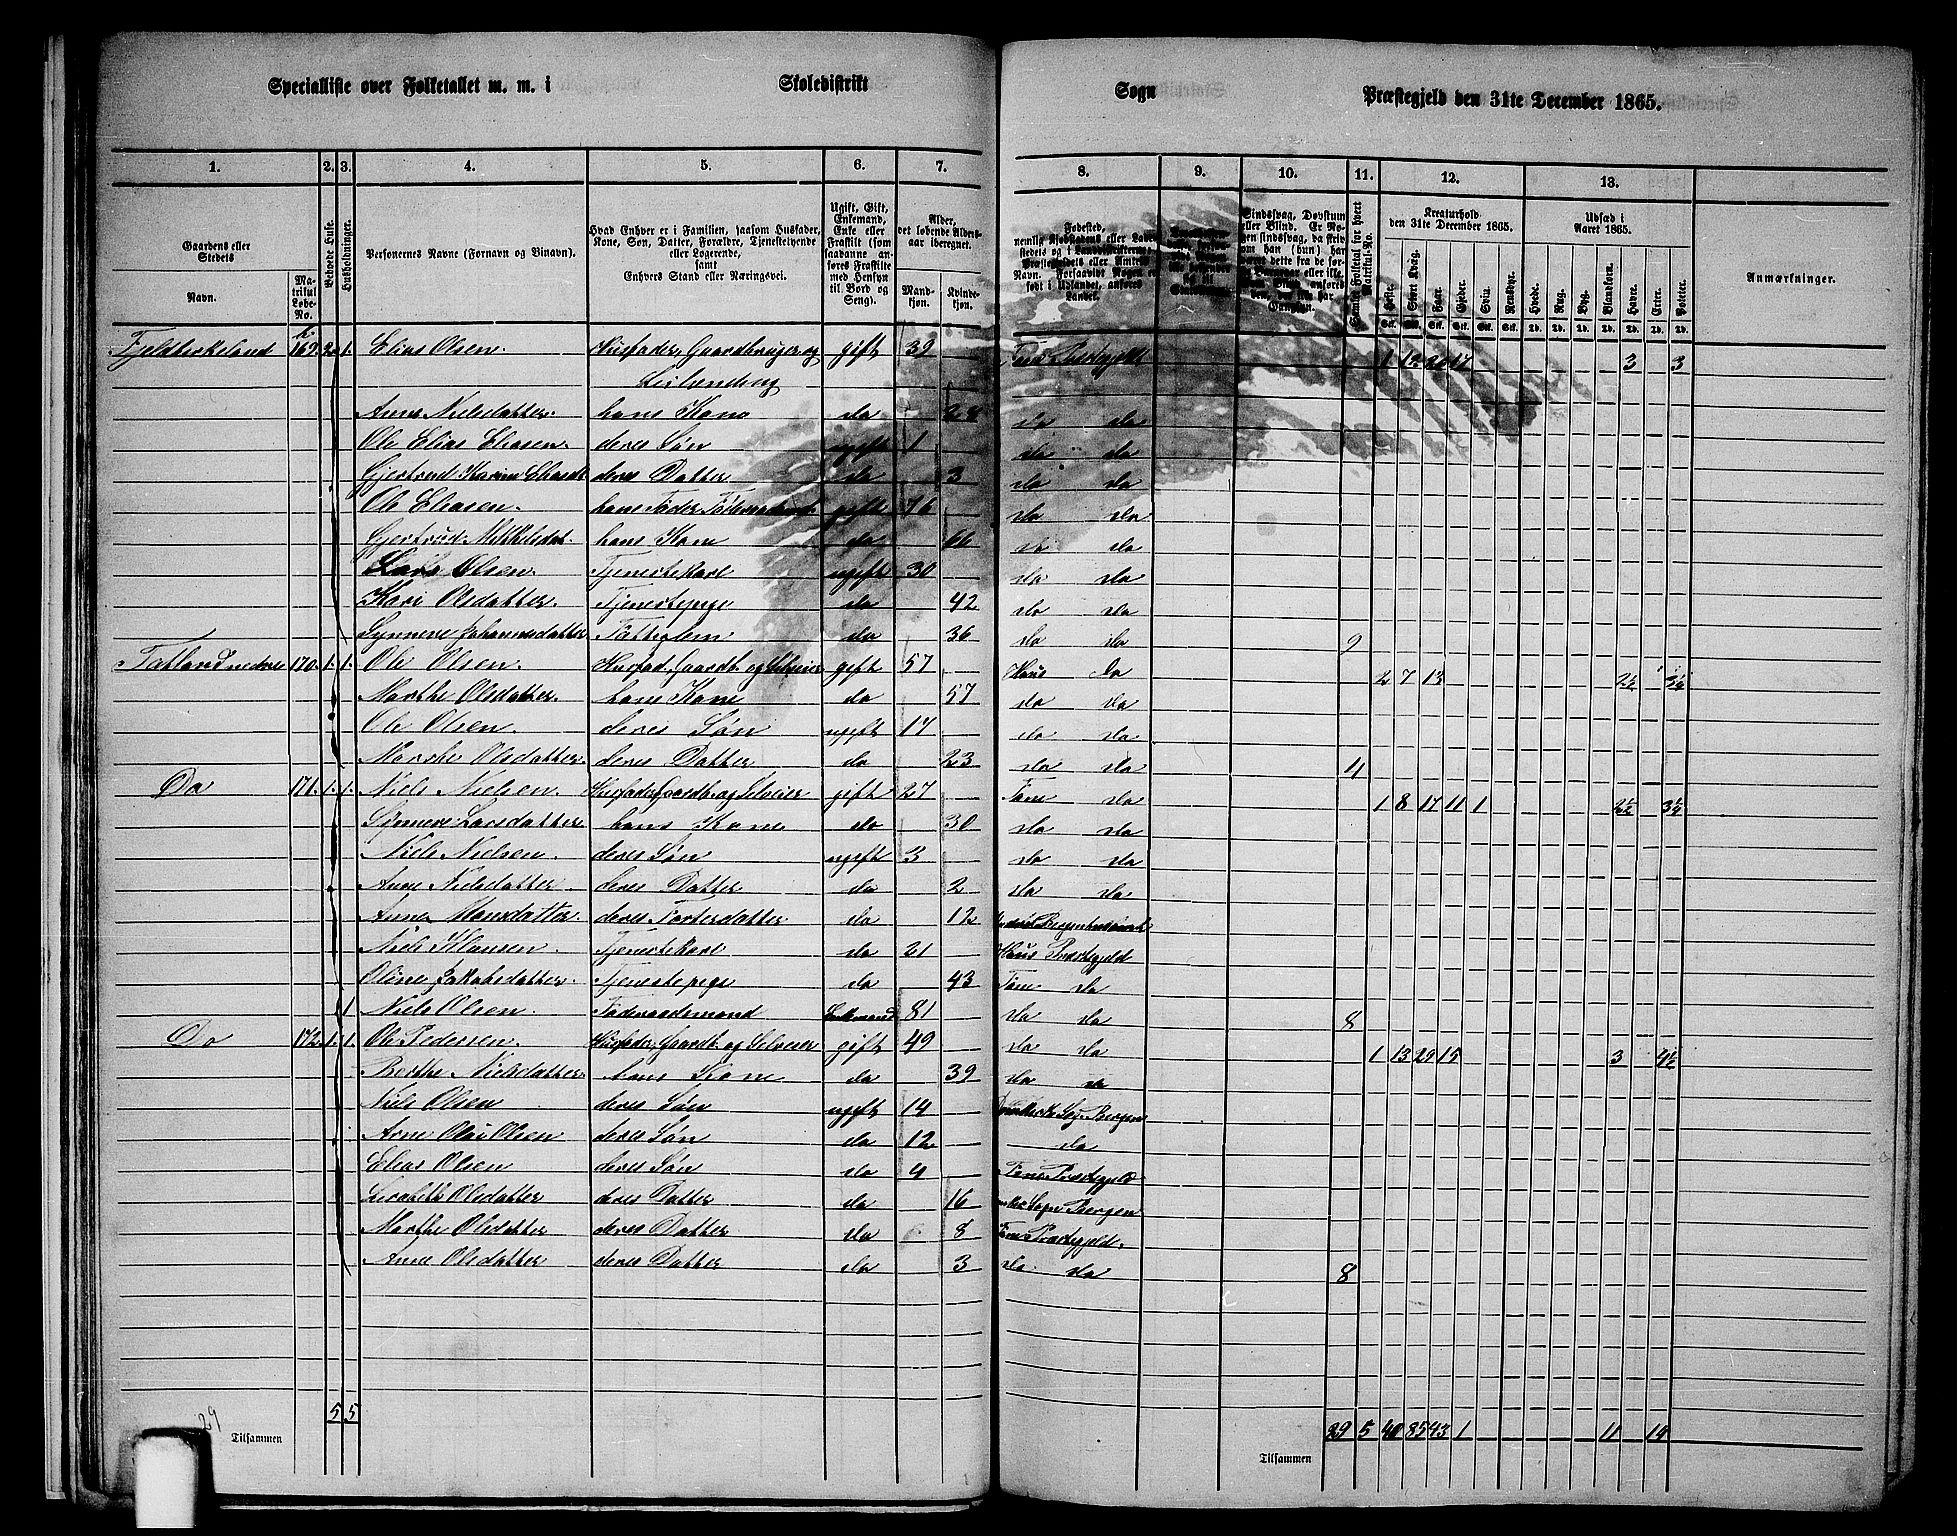 Specialliste over Folketallet m. m. i Skoledistrikt Sogn Præstegjeld den 31te December 1865.
1. 2. 3. 4. 5. 6. 7. 8. 9. 10. 11. 12. 13.
Gaardens eller Stedets Navn. Matrikul Løbe-No. Beboede Huse. Husholdninger. Personernes Navne (Fornavn og Binavn).
Hvad Enhver er i Familien, saasom Husfader, Kone, Søn, Datter, Forældre, Tjenestetyende eller Logerende, samt Enhvers Stand eller Næringsvei.
Ugift, Gift, Enkemand, Enke eller Fraskilt (som saadanne anføres Fraskilte med Hensyn til Bord og Seng).
Alder, det løbende Alders-aar iberegnet. Mandkjøn. Kvindekjøn.
Kreaturhold den 31te December 1865. Udsæd i Aaret 1865. Anmærkninger.
Heste. Stort Kvæg. Faar. Gjeder. Sviin. Rensdyr. Hvede. Rug. Byg. Blandkorn. Havre. Erter. Poteter.
Fjeldbirkeland 169 b 2 1. Elias Olsen Husfader, Gaardbruger og gift 39 1 12 20 17 3 3
Leilænding
Anne Nielsdatter hans Kone do 28 do do
Ole Elias Eliasen deres Søn ugift 1 do do
Gjertrud Karine Eliasdt deres Datter do 3 do do
Ole Eliasen hans Fader, gift 76 do do
Gjertrud Mikkelsdat. hans Kone do 66 do do
Lars Olsen Tjenestekarl ugift 30 do do
Kari Olsdatter Tjenestepige do 42 do do
Synneve Johannesdatter Fattiglem do 36 do do 9
Tatland nedre 170. 1. 1. Ole Olsen Husfad. Gaardb. og Selveier gift 57 Haus do 2 7 13 2½ 3¼
Marthe Olsdatter hans Kone do 57 do do
Ole Olsen deres Søn ugift 17 do do
Marthe Olsdatter deres Datter do 23 do do 4
Do 171. 1. 1. Niels Nielsen Husfader Gaardb. og Selveier gift 27 do 1 8 17 11 1 2½
Synneve Larsdatter hans Kone do 30 do do
Niels Nielsen deres Søn ugift 3 do do
Anne Nielsdatter deres Datter do 2 do do
Anne Monsdatter deres Fosterdatter do 12
Niels Hansen Tjenestekarl do 21 Haus Præstegjeld
Oline Jakobsdatter Tjenestepige do 43 do
1 Niels Olsen Føderaadsmand Enkemand 81 do do 8
Do 172. 1. 1. Ole Pedersen Husfader, Gaardb. og Selveier gift 49 do do 1 13 29 15 3
Berthe Nielsdatter hans Kone do 39 do do
Niels Olsen deres Søn ugift 14 Bergen
Arne Olai Olsen deres Søn do 12 do
Elias Olsen deres Søn do 4 Præstegjeld
Lisabeth Olsdatter deres Datter do 16 Sogn Bergen
Marthe Olsdatter deres Datter do 8 Præstegjeld.
Anne Olsdatter deres Datter do 3 do do 8
5 5
29 Tilsammen
Tilsammen 29 5 40 85 43 1 11 14